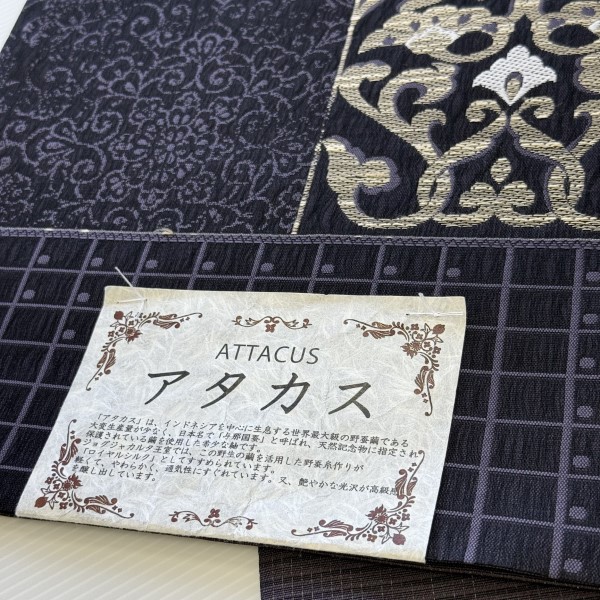 ATTACUS
アタカス
「アタカス」は、インドネシアを中心に生息する世界最大級の野蚕繭である
大変生産量が少なく、日本名で「与那国蚕」と呼ばれ、天然記念物に指定され
保護されている繭を使用した希少な紬です。
ジョグジャカルタ王室では、この野生の繭を活用した野蚕糸作りが
「ロイヤルシルク」としてすすめられています。
軽くて、やわらかく、通気性にすぐれています。又、艶やかな光沢が高級感
を醸し出しています。